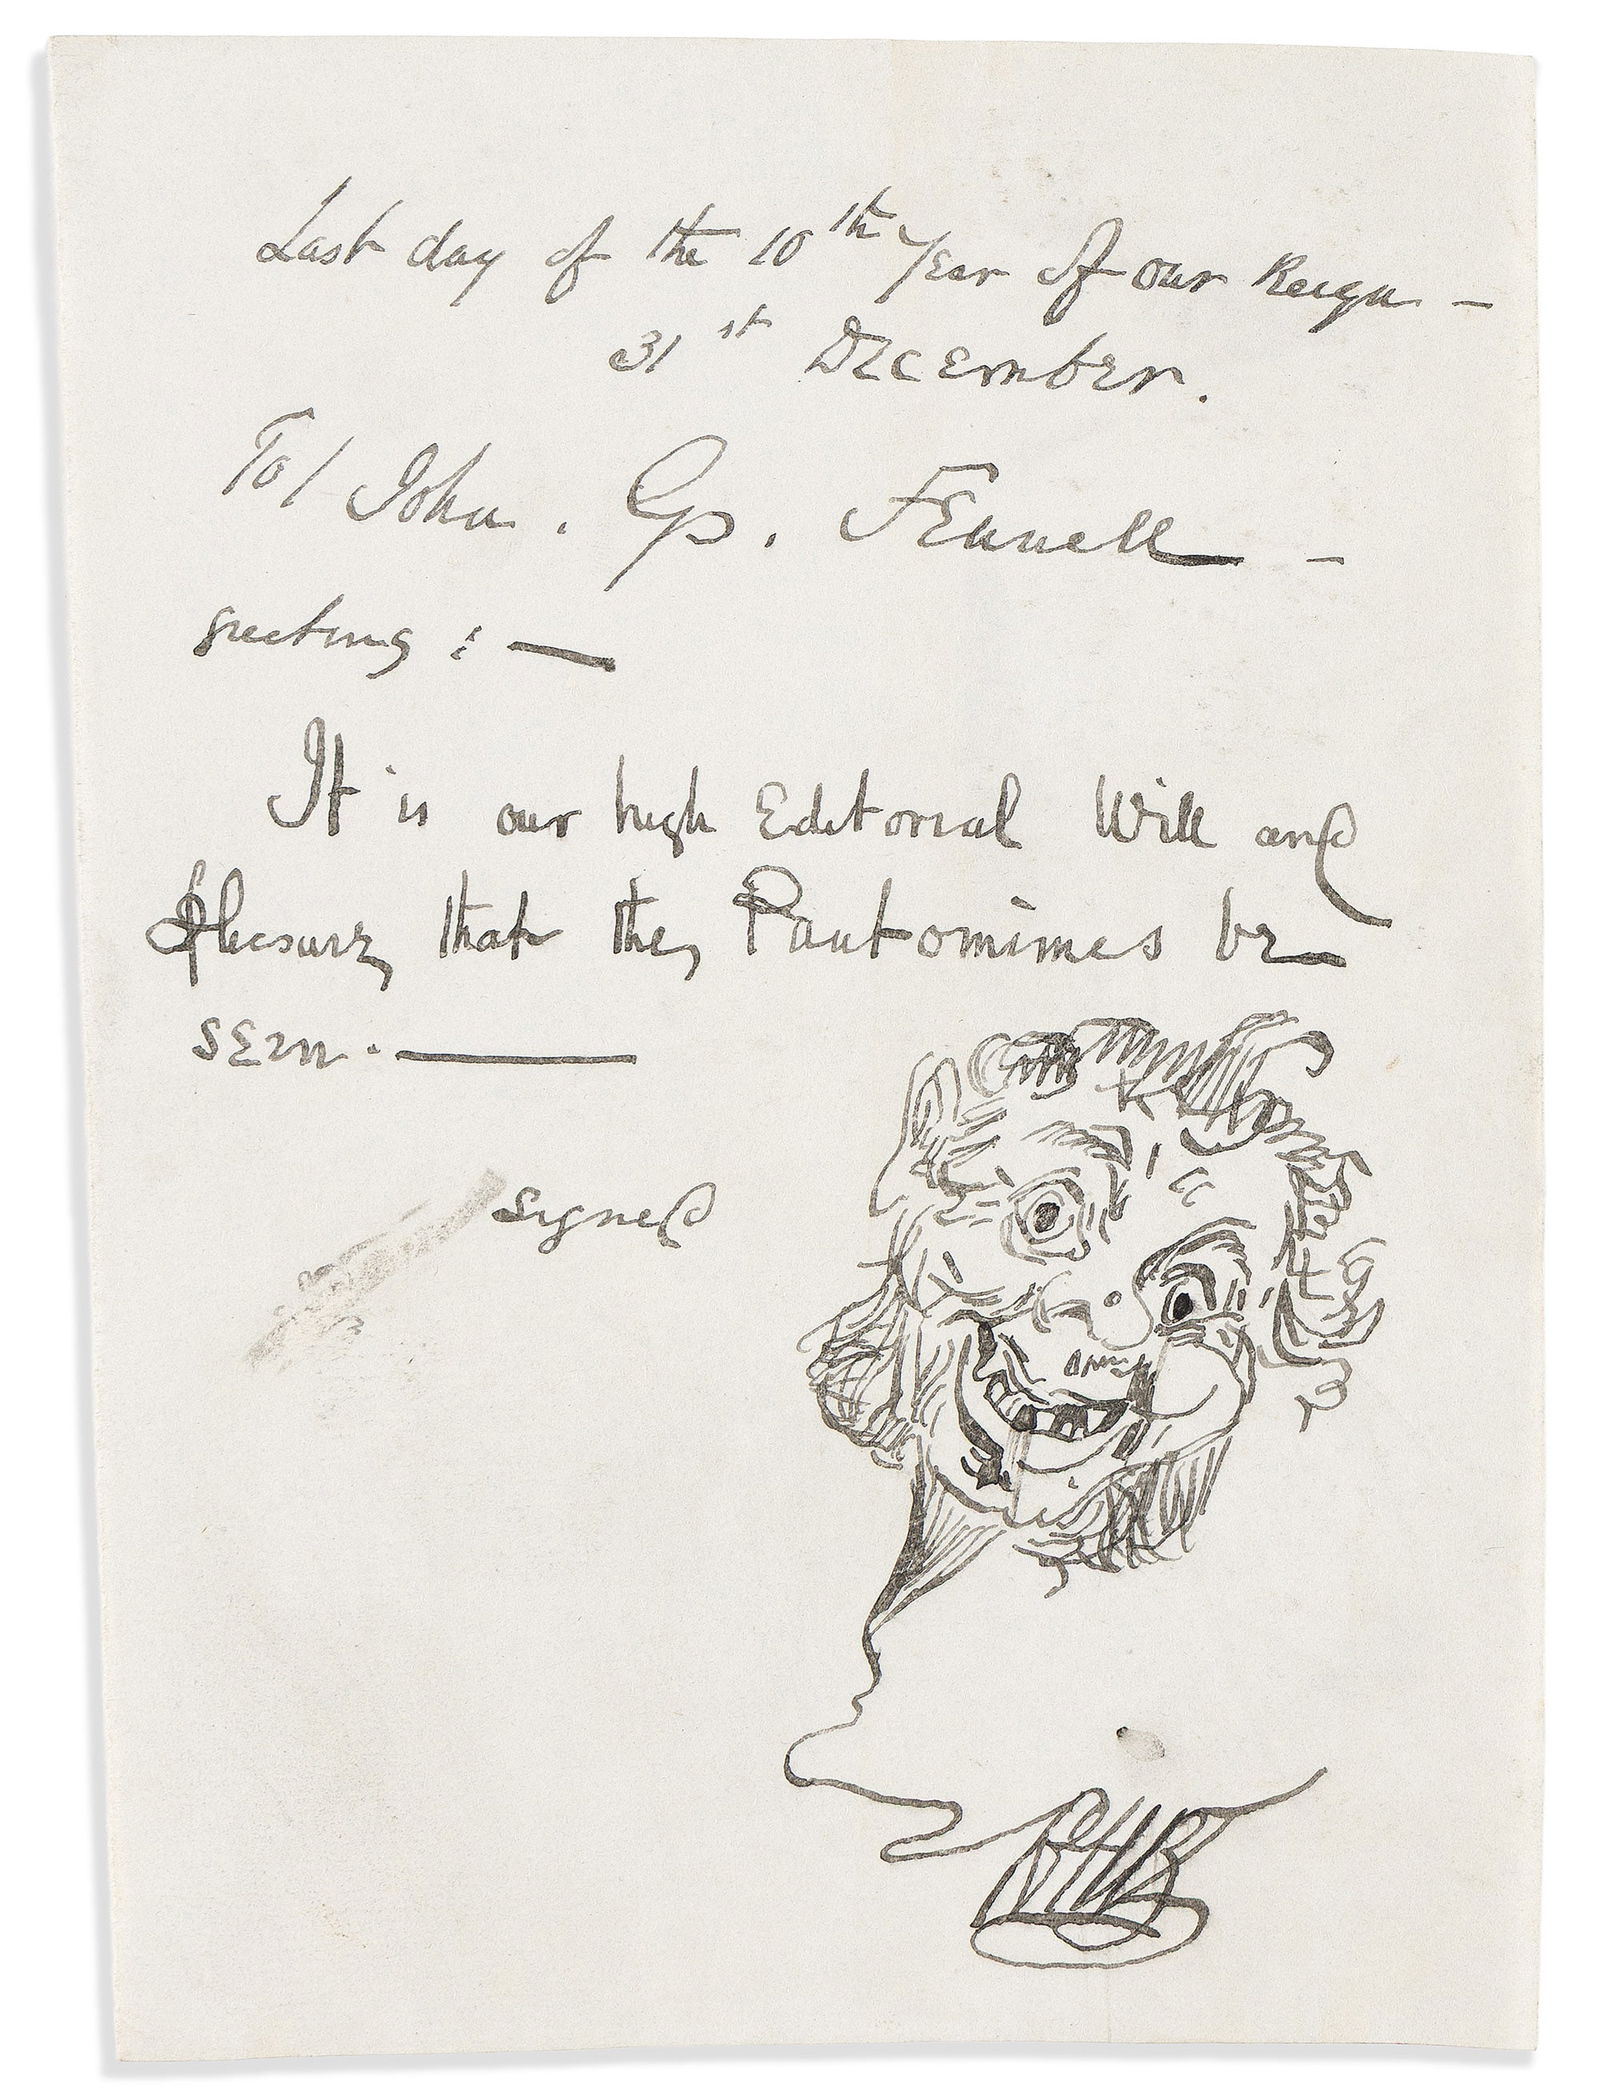 Last day of the 10th Year of our Reign —
31st December.
To/ John. Gp. Fennell —
greeting : —
It is our high Editorial Will and
Pleasure, that the, Pantomimes be
seen. —
Signed